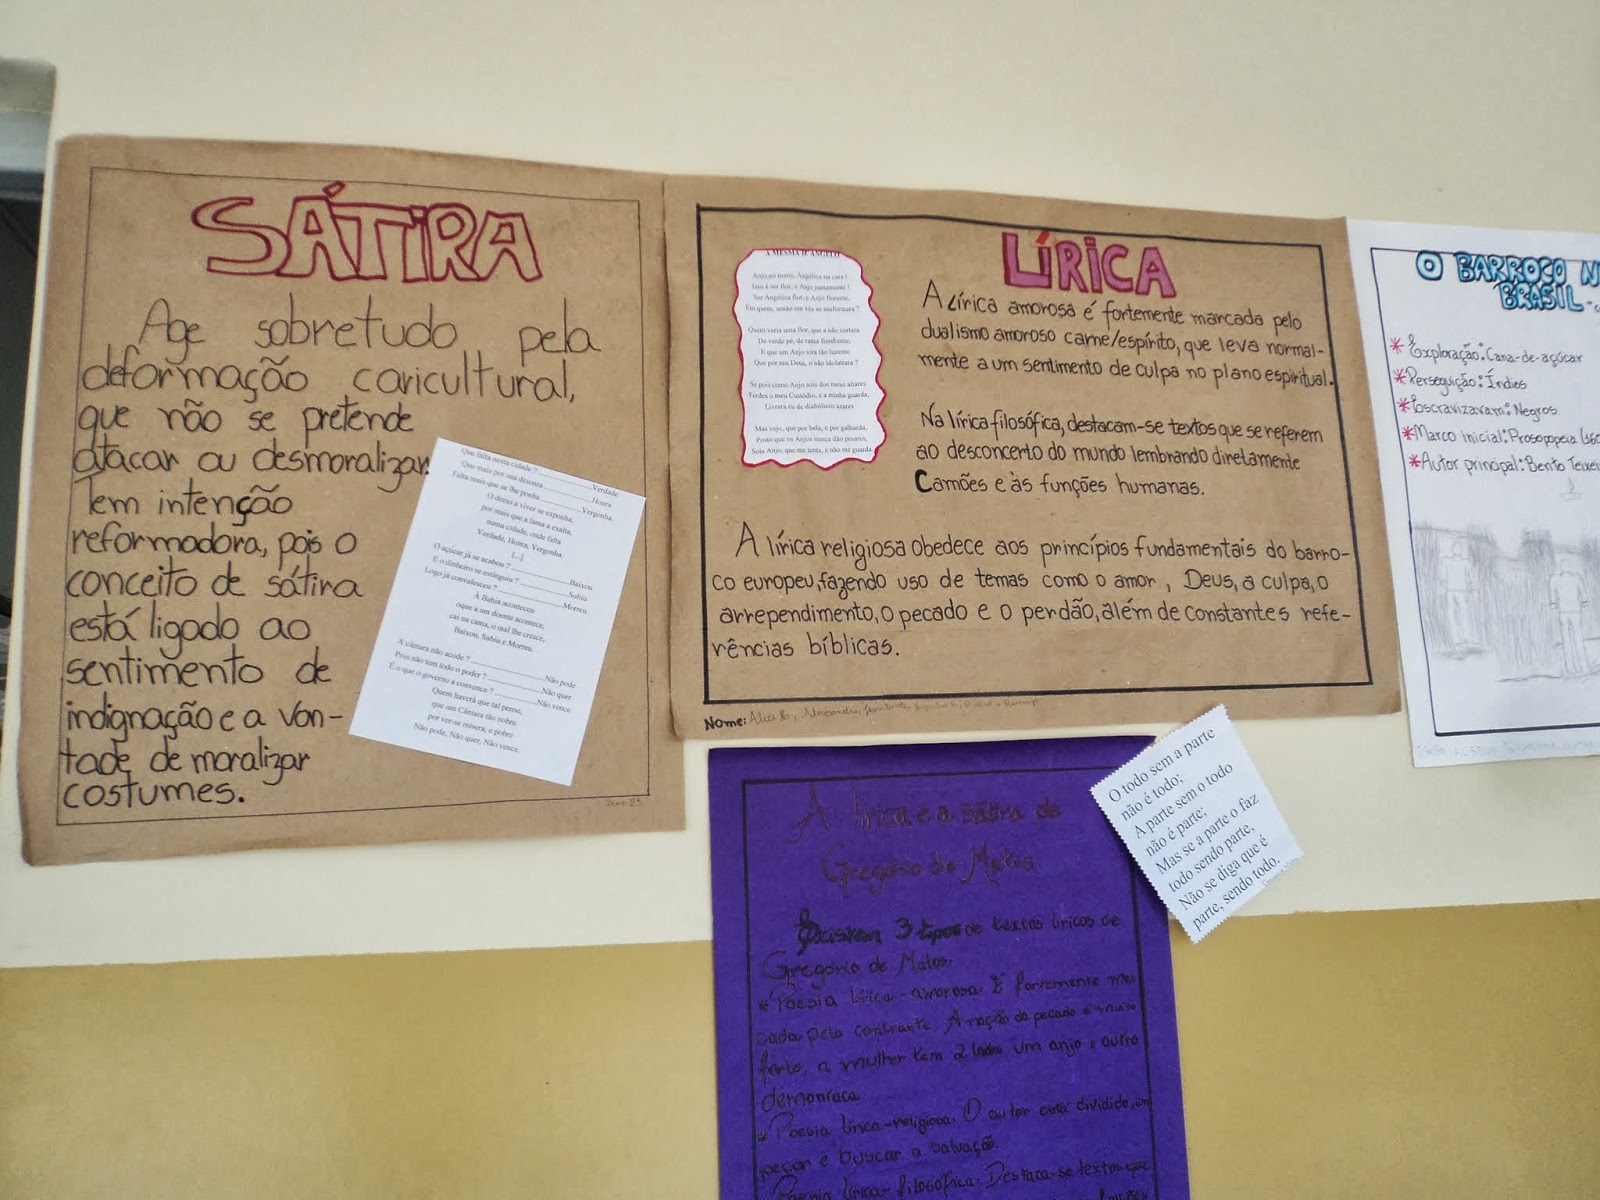 SÁTIRA
Age sobretudo pela
deformação caricultural,
que não se pretende
atacar ou desmoralizar.
Tem intenção
reformadora, pois o
conceito de sátira
está ligado ao
sentimento de
indignação e a von-
tade de moralizar
costumes.
Que falta nesta cidade ? Verdade
Que mais por sua desonra Honra
Falta mais que se lhe ponha Vergonha.
O demo a viver se exponha,
por mais que a fama a exalta,
numa cidade, onde falta
Verdade, Honra, Vergonha.
[...]
O açúcar já se acabou ? Baixou
E o dinheiro se extinguiu ? Subiu
Logo já convalesceu ? Morreu.
À Bahia aconteceu
oque a um doente acontece,
cai na cama, o mal lhe cresce,
Baixou, Subiu e Morreu.
A câmara não acode ? Não pode
Pois não tem todo o poder ? Não quer
É o que o governo a convence ? Não vence
Quem haverá que tal pense,
que um Câmara tão nobre
por ver-se mísera, e pobre
Não pode, Não quer, Não vence.
LÍRICA
Anjo no nome, Angélica na cara !
Isso é ser flor, e Anjo juntamente !
Ser Angélica flor, e Anjo florente,
Em quem, senão em vós se uniformara ?
Quem veria uma flor, que a não cortara
De verde pé, de rama florebente;
E que um Anjo vira tão luzente
Que por seu Deus, o não idolatrara ?
Se pois como Anjo sois dos meus altares
Fordes o meu Custódio, e a minha guarda,
Livrara eu de diabólicos azares
Mas vejo, que por bela, e por galharda,
Posto que os Anjos nunca dão pesares,
Sois Anjo, que me tenta, e não me guarda
A Lírica amorosa é fortemente marcada pelo
dualismo amoroso carne/espírito, que leva normal-
mente a um sentimento de culpa no plano espiritual.
Na lírica filosófica, destacam-se textos que se referem
ao desconcerto do mundo lembrando diretamente
Camões e às funções humanas.
A lírica religiosa obedece aos princípios fundamentais do barro-
co europeu, fazendo uso de temas como o amor, Deus, a culpa, o
arrependimento, o pecado e o perdão, além de constantes refe-
rências bíblicas.
Nome:
O BARROCO N
BRASIL
* Exploração: Cana-de-açúcar
* Perseguição: Índios
* Escravizavam: Negros
* Marco inicial: Prosopopeia
* Autor principal: Bento Teixei
A lírica e a sátira de
Gregório de Matos
Existem 3 tipos de textos líricos de
Gregório de Matos.
* Poesia lírica-amorosa. É fortemente mar
cada pelo contraste. A noção do pecado é muito
forte, a mulher tem 2 lados um anjo e outro
demoníaca
* Poesia lírica-religiosa. O autor está dividido, em
pecar e buscar a salvação.
Poesia lírica-filosófica. Destaca-se textos que
O todo sem a parte
não é todo;
A parte sem o todo
não é parte;
Mas se a parte o faz
todo sendo parte,
Não se diga que é
parte, sendo todo.